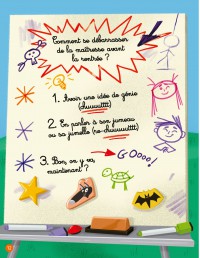 Comment se débarrasser
de la maîtresse avant
la rentrée ?
1. Avoir une idée de génie
(chuuuutttt)
2. En parler à son jumeau
ou sa jumelle (re-chuuuutttt)
3. Bon, on y va,
maintenant ?
GOooo!